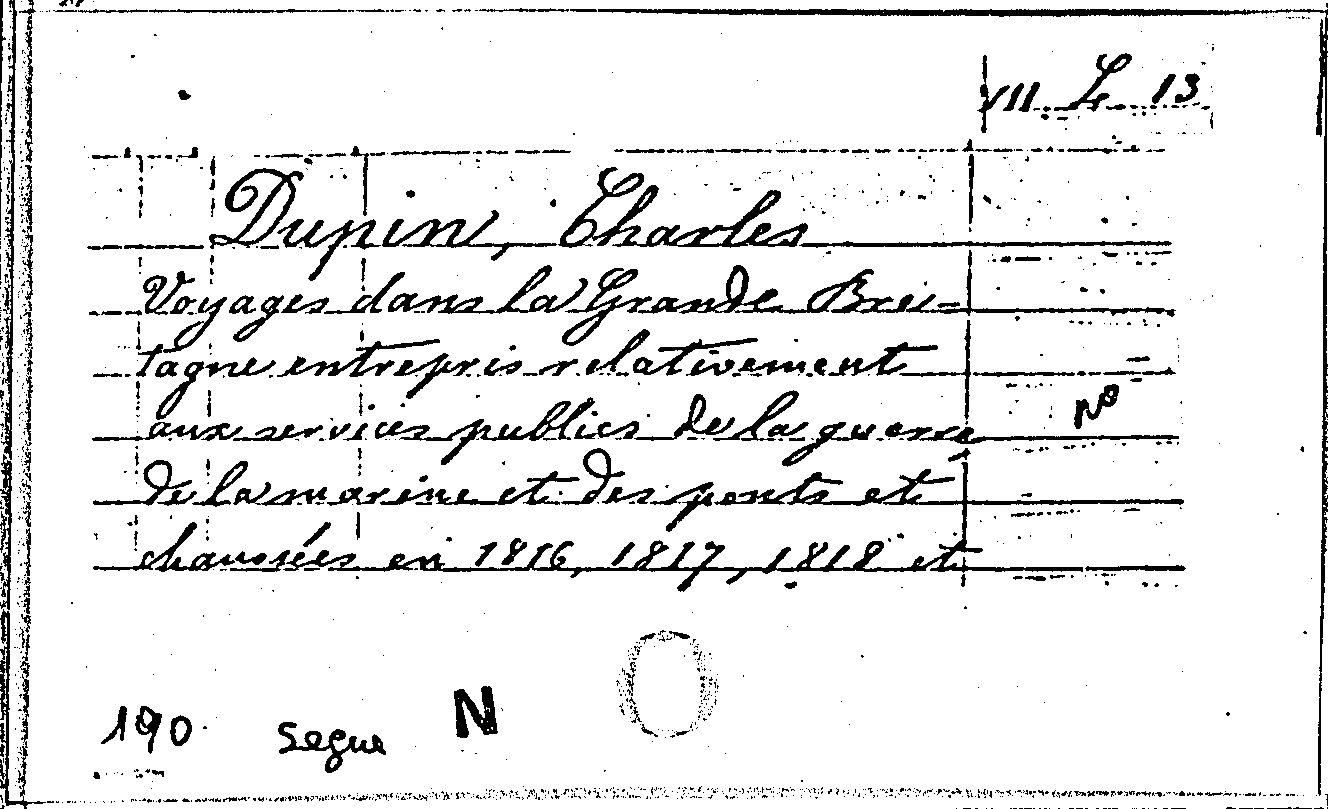 VII L 13
Dupin, Charles
Voyages dans la Grande Bre=
tagne entrepris relativement
aux services publics de la guerre
no
de la marine et des ponts et
chaussées en 1816, 1817, 1818 et
190 segue N